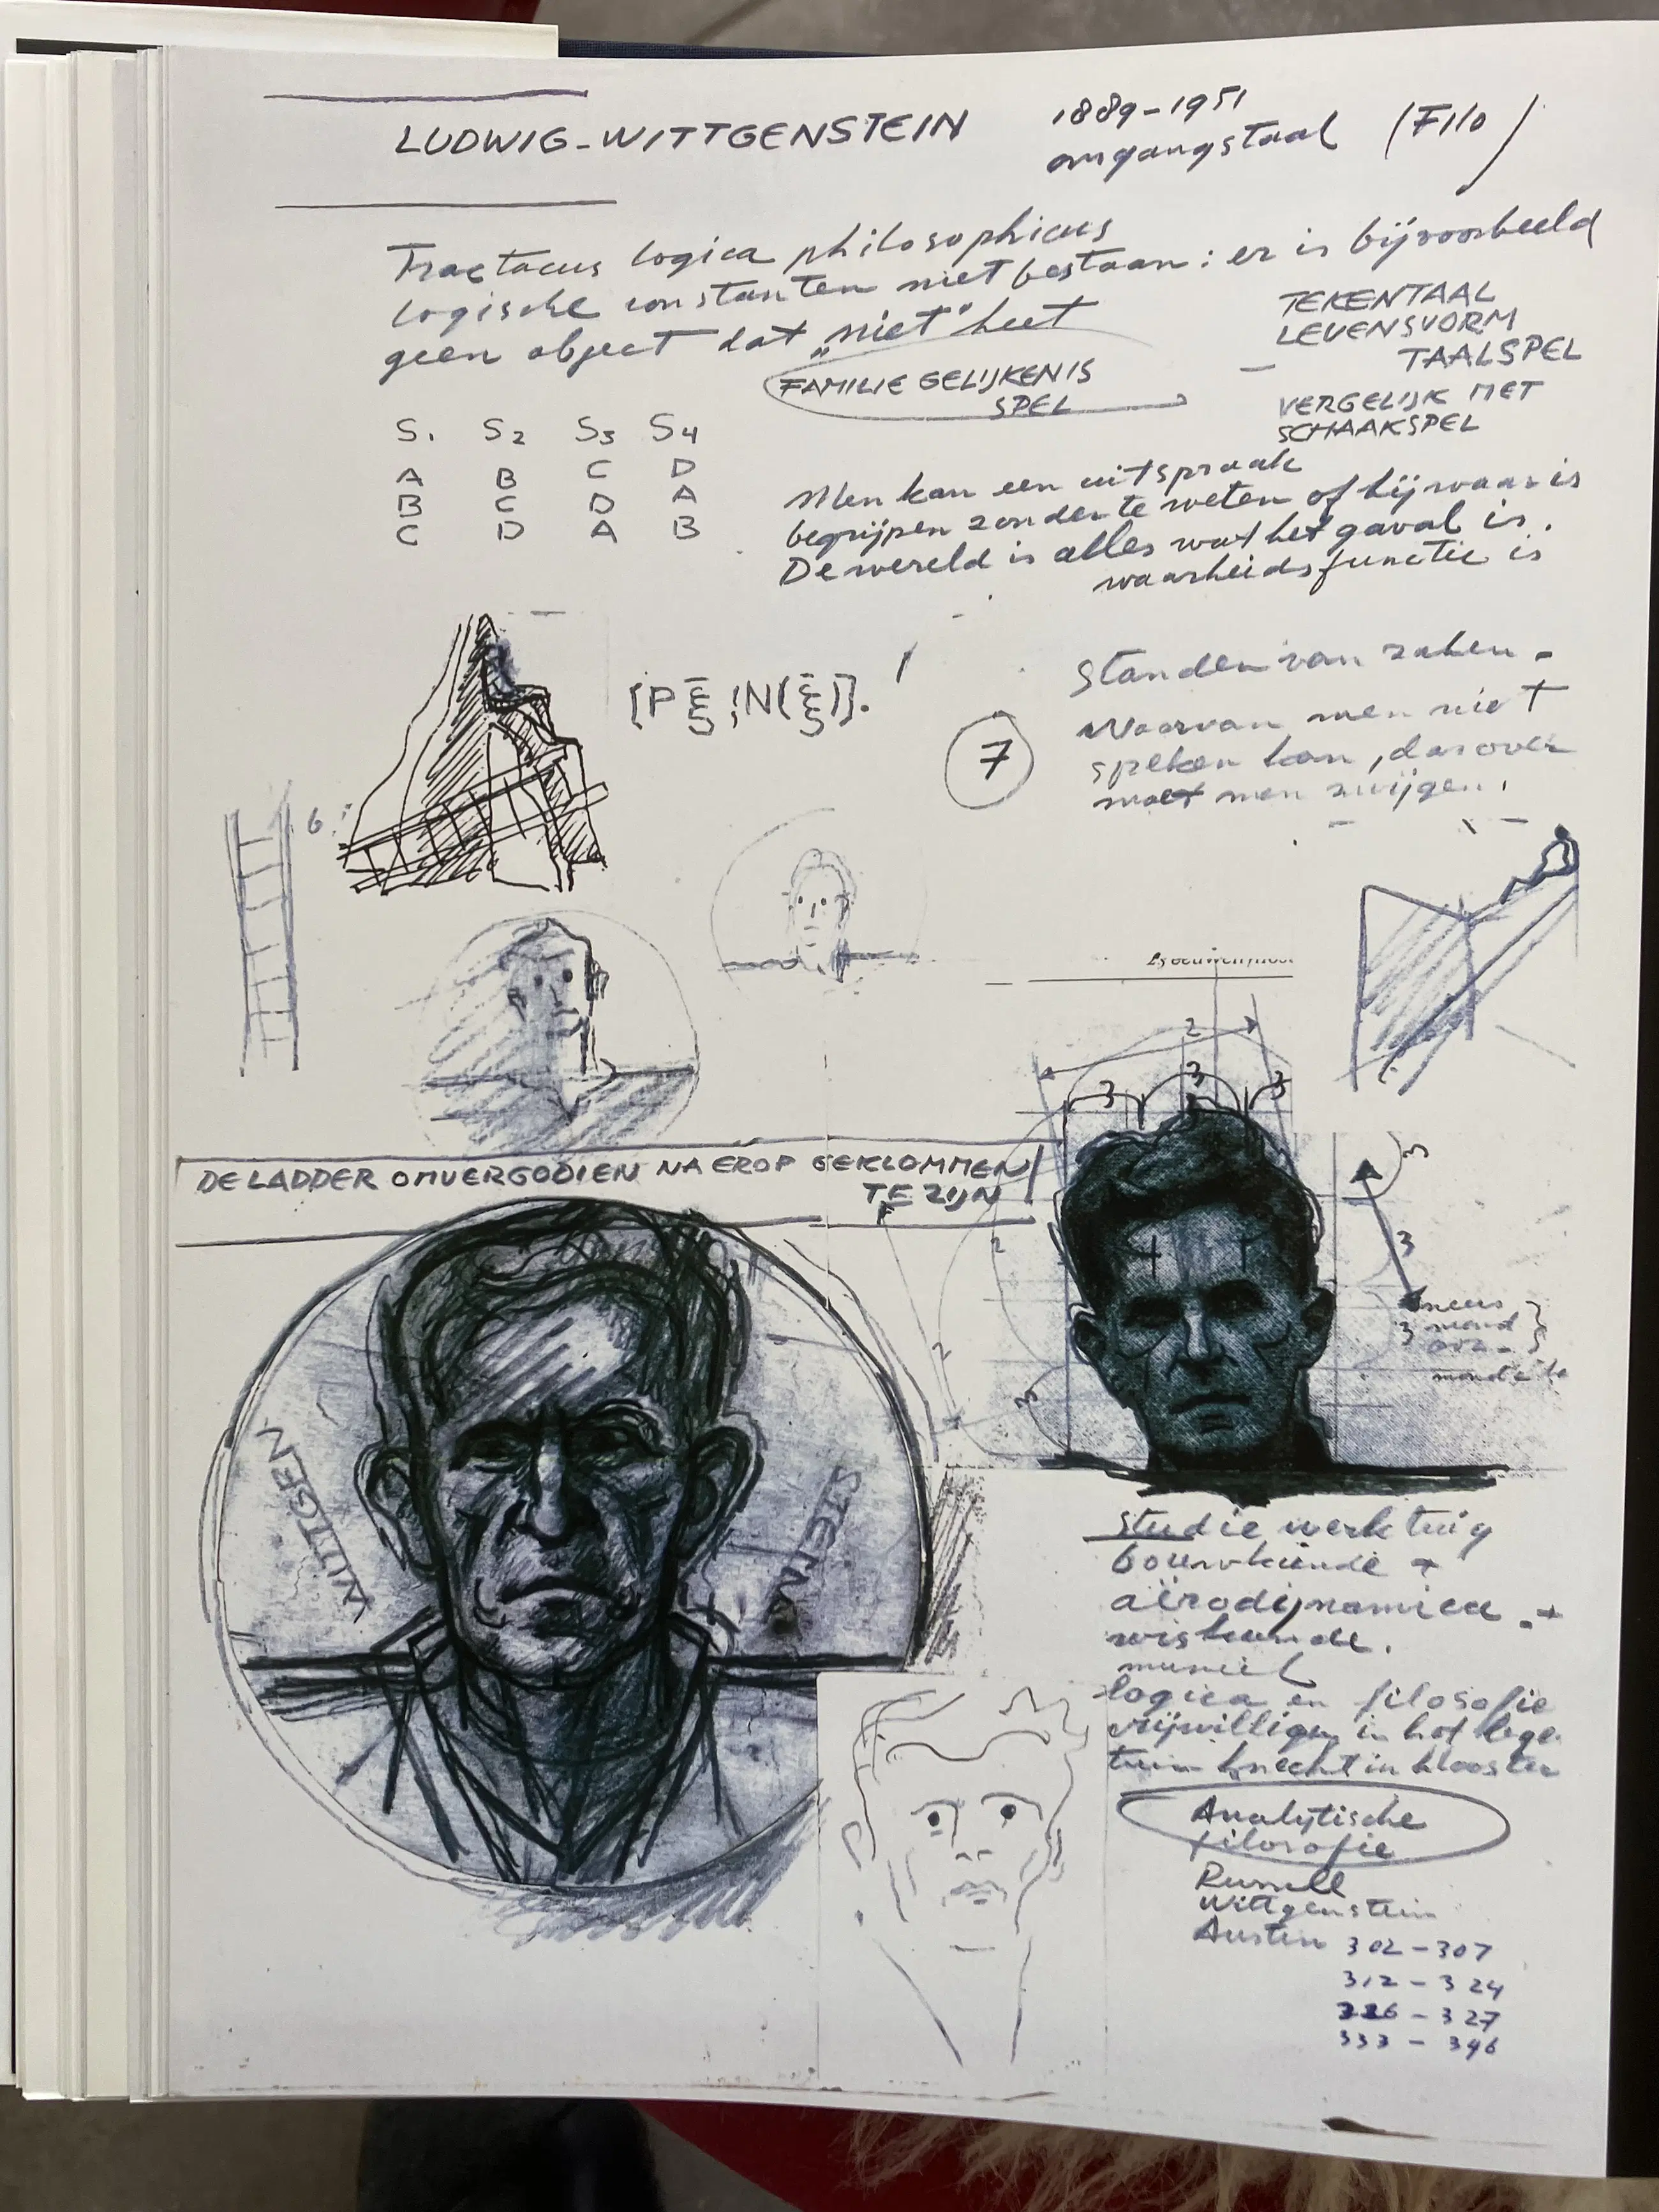 LUDWIG-WITTGENSTEIN
1889-1951
omgangstaal (Filo)
Tractacus logica philosophicus
logische constanten niet bestaan: er is bijvoorbeeld
geen object dat „niet" heet
TEKENTAAL
LEVENSVORM
TAALSPEL
VERGELIJK MET
SCHAAKSPEL
FAMILIE GELIJKENIS
SPEL
S1 S2 S3 S4
A B C D
B C D A
C D A B
Men kan een uitspraak
begrijpen zonder te weten of hij waar is
De wereld is alles wat het gaval is.
waarheidsfunctie is
[P ξ̄ ¦N(ξ̄)].
Standen van zaken -
7
Waarvan men niet
spreken kan, darover
moet men zwijgen.
6
DE LADDER OMVERGOOIEN NA EROP GEKLOMMEN
TE ZIJN
WITTGEN
STEIN
2
3 3 3
3
3
2
2
3
neus
3 mond
Studie werktuig
bouwkunde +
aërodynamica +
wiskunde.
muziek
logica en filosofie
vrijwilliger in het lege
tuin knecht in klooster
Analytische
filosofie
Russell
Wittgenstein
Austin 302-307
312-324
326-327
333-396